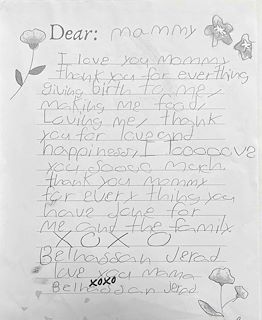 Dear: mammy
I love you Mommy
thank you for everthing
giving birth to me,
making me food,
Loving me, thank
you for love and
happiness, I looooove
you soooo much
thank you mommy
for every thing you
have done for
me and the familx
XOXO
Belhassan Jerad
love you mama
xoxo
Belhassan Jerad